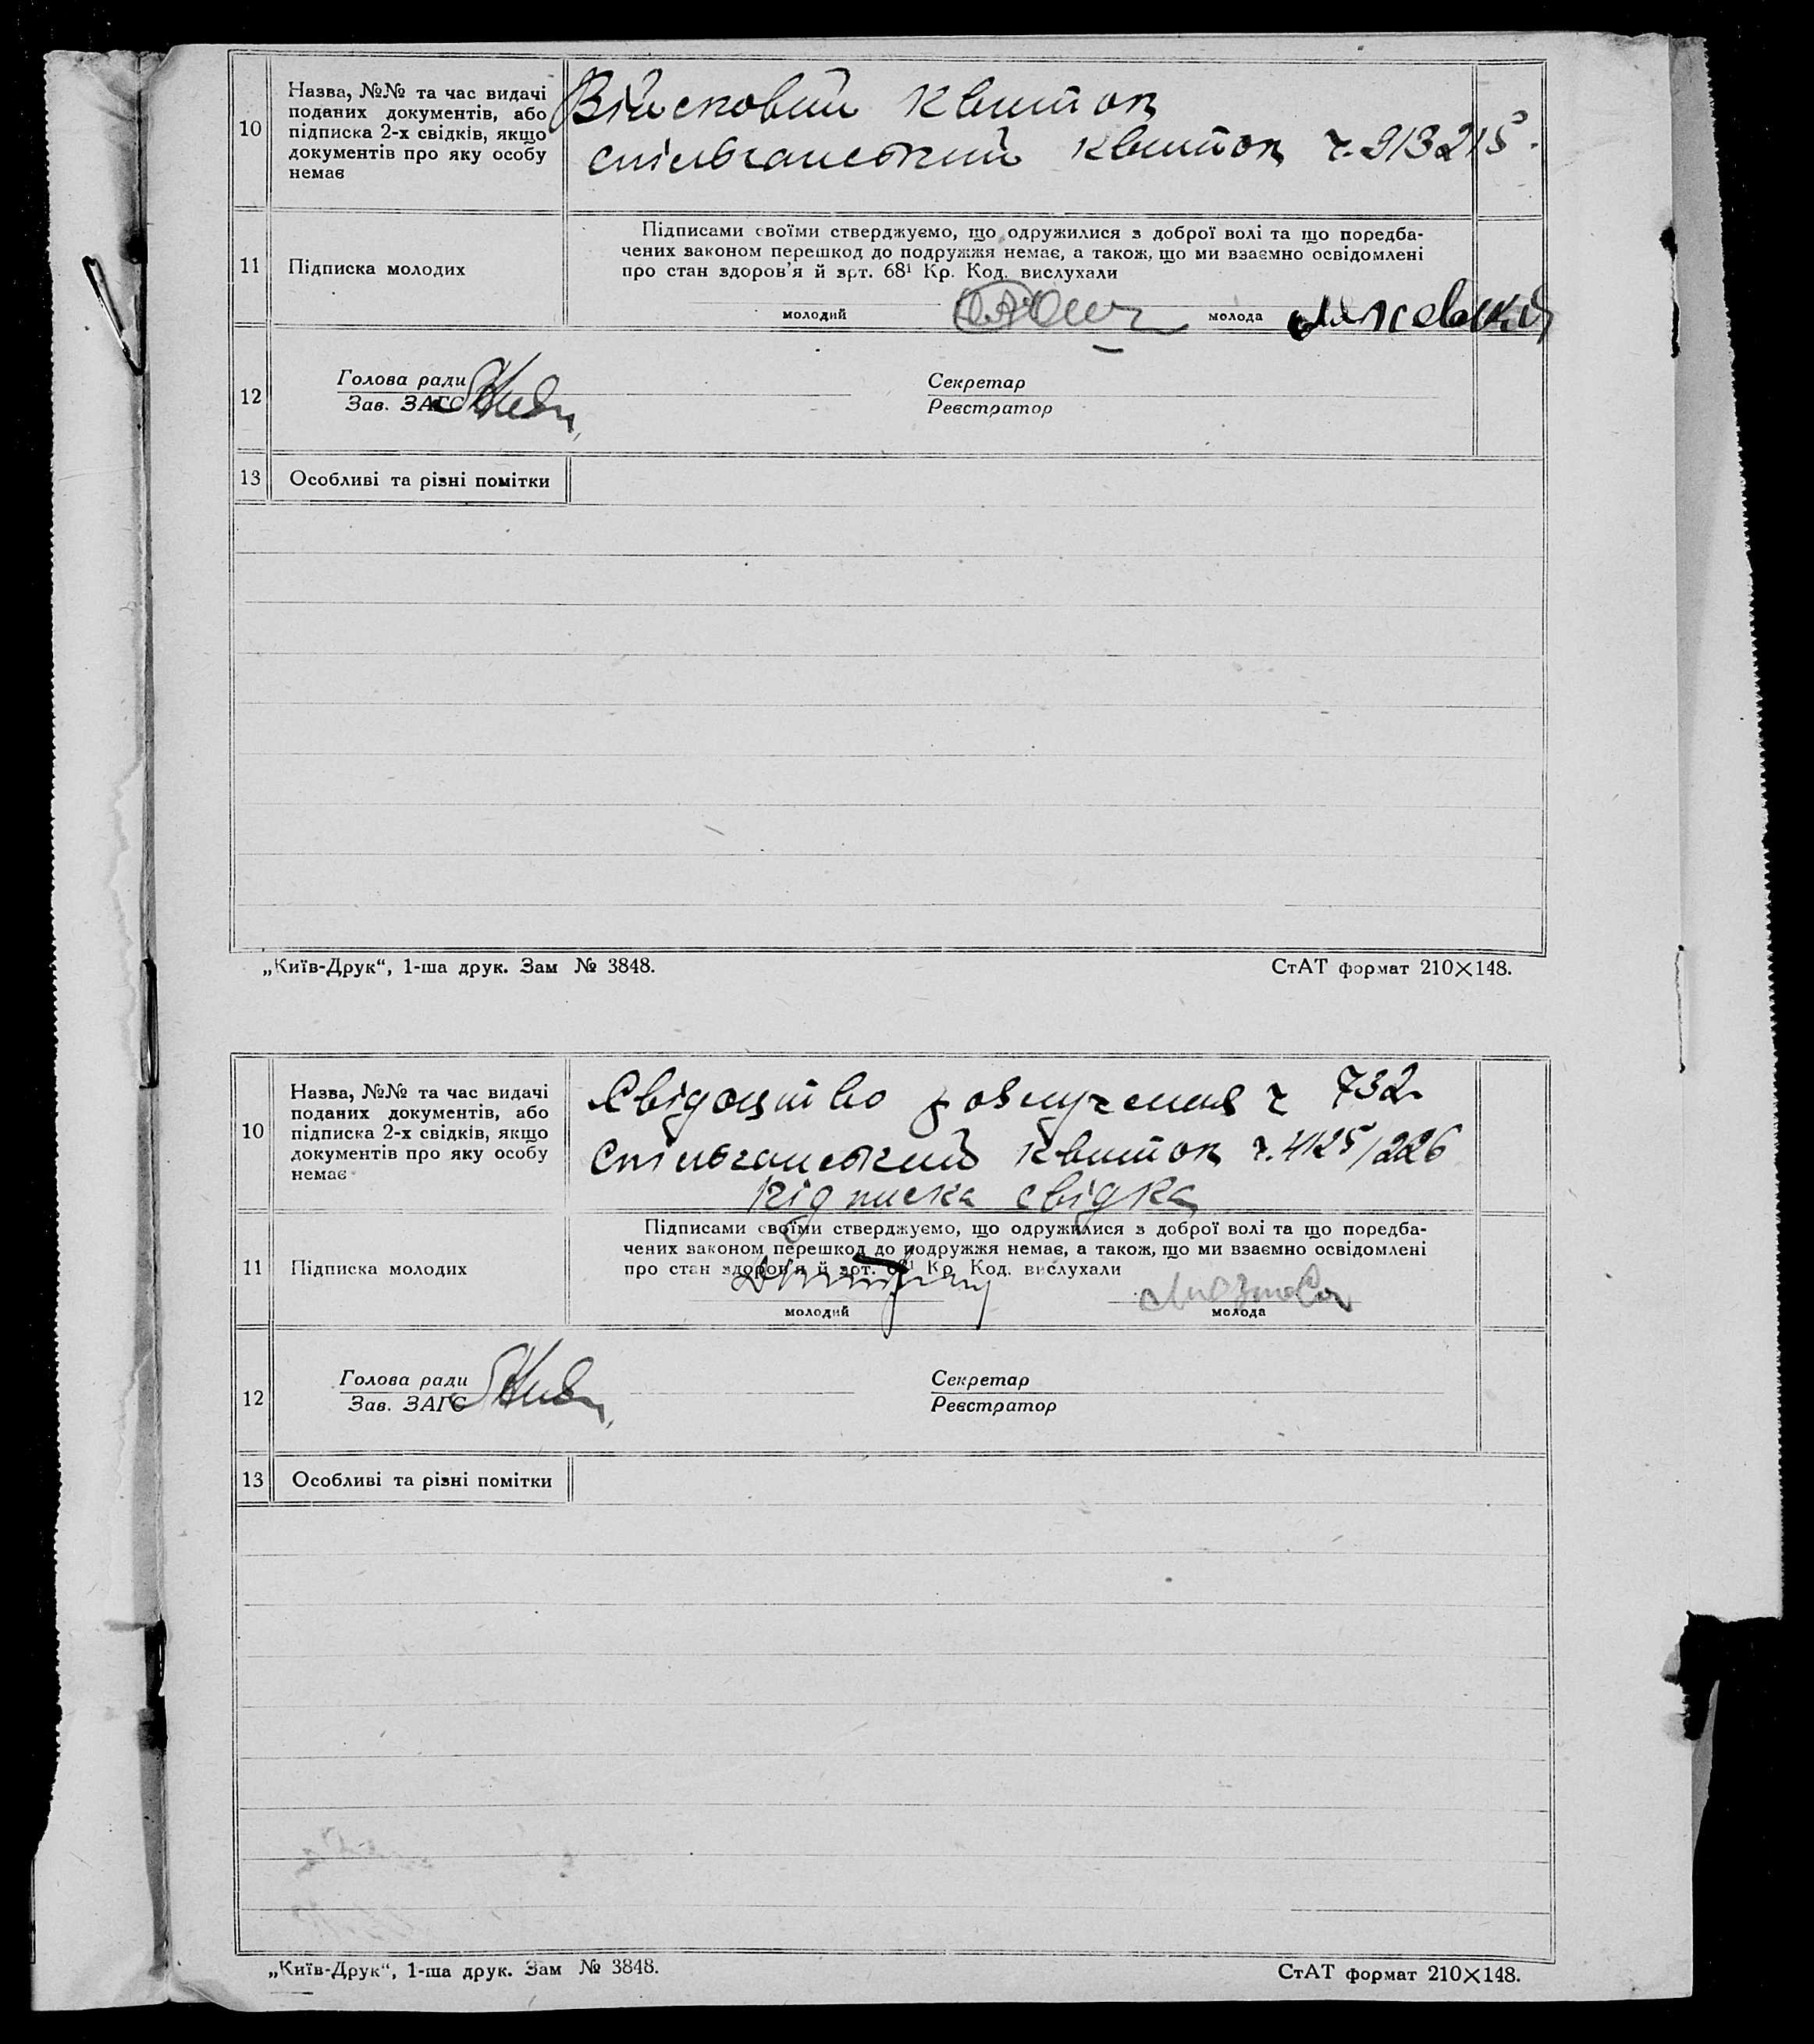 10
Назва, №№ та час видачі
поданих документів, або
підписка 2-х свідків, якщо
документів про яку особу
немає
Військовий квиток
спільчанський квиток ч. 313215.
11
Підписка молодих
Підписами своїми стверджуємо, що одружилися з доброї волі та що поредба-
чених законом перешкод до подружжя немає, а також, що ми взаємно освідомлені
про стан здоров'я й арт. 68¹ Кр. Код. вислухали
молодий
молода
12
Голова ради
Зав. ЗАГС
Секретар
Реєстратор
13
Особливі та різні помітки
„Київ-Друк“, 1-ша друк. Зам № 3848.
СтАТ формат 210×148.
10
Назва, №№ та час видачі
поданих документів, або
підписка 2-х свідків, якщо
документів про яку особу
немає
Свідоцтво розлучення ч 732
Спільчанський квиток ч. 4125/226
підписка свідка
11
Підписка молодих
Підписами своїми стверджуємо, що одружилися з доброї волі та що поредба-
чених законом перешкод до подружжя немає, а також, що ми взаємно освідомлені
про стан здоров'я й арт. 68¹ Кр. Код. вислухали
молодий
молода
12
Голова ради
Зав. ЗАГС
Секретар
Реєстратор
13
Особливі та різні помітки
„Київ-Друк“, 1-ша друк. Зам № 3848.
СтАТ формат 210×148.